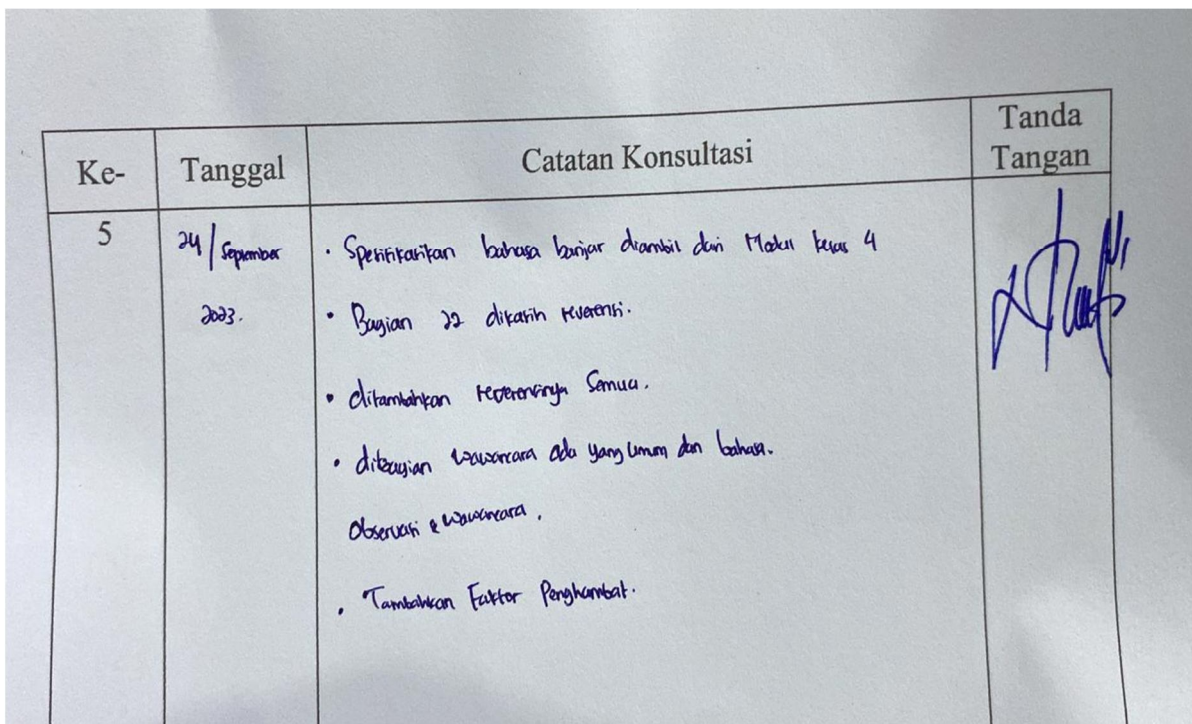 Ke-
Tanggal
Catatan Konsultasi
Tanda
Tangan
5
24/September
2023.
• Spesifikasikan bahasa banjar diambil dari Modul kelas 4
• Bagian 22 dikasih reverensi.
• ditambahkan reverensinya Semua.
• dibagian wawancara ada yang Umum dan bahasa.
Observasi & wawancara.
• Tambahkan Faktor Penghambat.